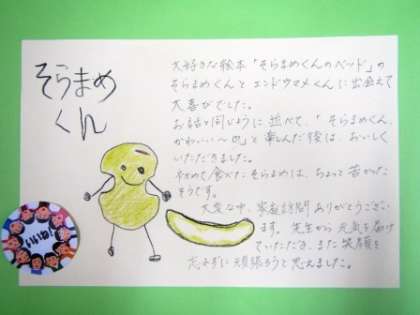 そらまめ
くん
大好きな絵本「そらまめくんのベッド」の
そらまめくんとエンドウマメくんに出会えて
大喜びでした。
お話と同じように並べて、「そらまめくん、
かわいい〜の」と楽しんだ後は、おいしく
いただきました。
初めて食べたそらまめは、ちょっと苦かった
そうです。
大変な中、家庭訪問ありがとうござい
ます。先生から元気を届け
ていただき、また笑顔を
忘れずに頑張ろうと思えました。
いいね!